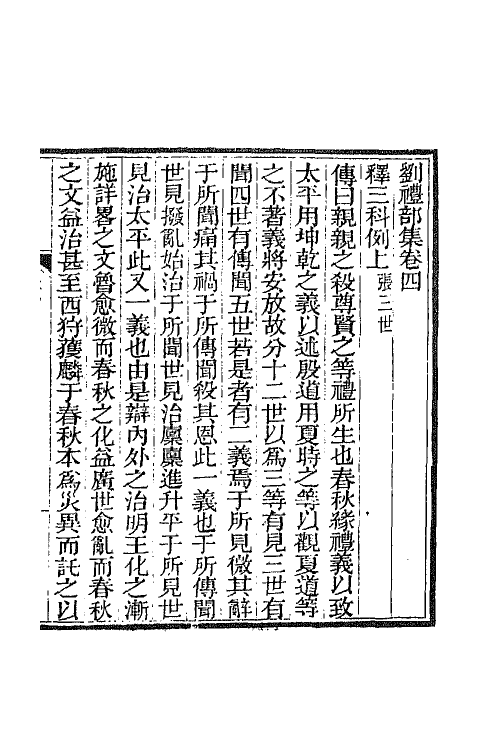 劉禮部集卷四
釋三科例上張三世
傳曰親親之殺尊賢之等禮所生也春秋緣禮義以致
太平用坤乾之義以述殷道用夏時之等以觀夏道等
之不著義將安放故分十二世以為三等有見三世有
聞四世有傳聞五世若是者有二義焉于所見微其辭
于所聞痛其禍于所傳聞殺其恩此一義也于所傳聞
世見撥亂始治于所聞世見治廩廩進升平于所見世
見治太平此又一義也由是辯內外之治明王化之漸
施詳畧之文魯愈微而春秋之化益廣世愈亂而春秋
之文益治甚至西狩獲麟于春秋本為災異而託之以